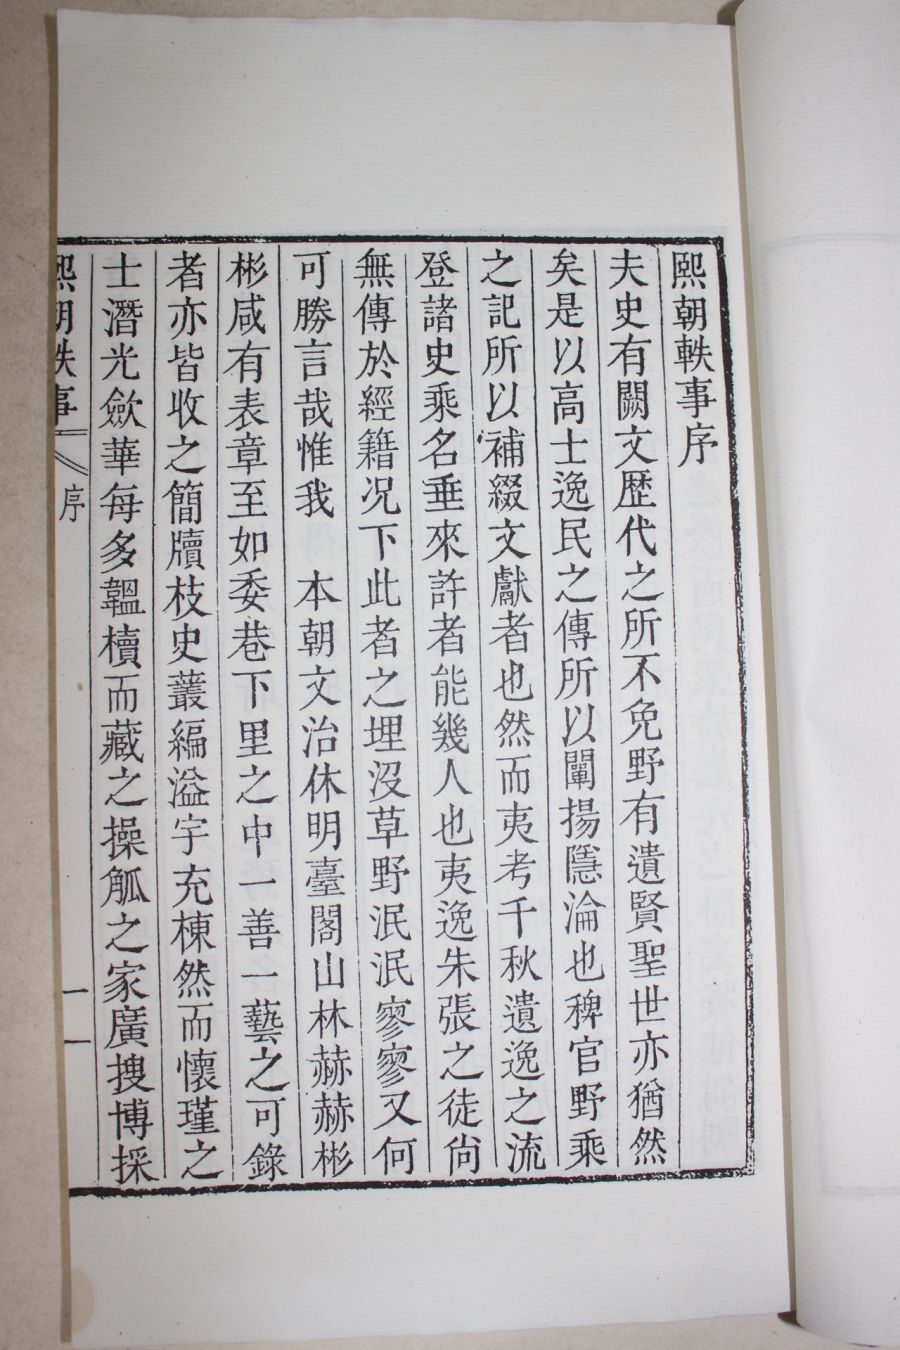 熙朝軼事序
夫史有闕文歷代之所不免野有遺賢聖世亦猶然
矣是以高士逸民之傳所以闡揚隱淪也稗官野乘
之記所以補綴文獻者也然而夷考千秋遺逸之流
登諸史乘名垂來許者能幾人也夷逸朱張之徒尙
無傳於經籍况下此者之埋沒草野泯泯寥寥又何
可勝言哉惟我　本朝文治休明臺閣山林赫赫彬
彬咸有表章至如委巷下里之中一善一藝之可錄
者亦皆收之簡牘枝史叢編溢宇充棟然而懷瑾之
士潛光歛華每多韞櫝而藏之操觚之家廣搜博採
熙朝軼事　序　一